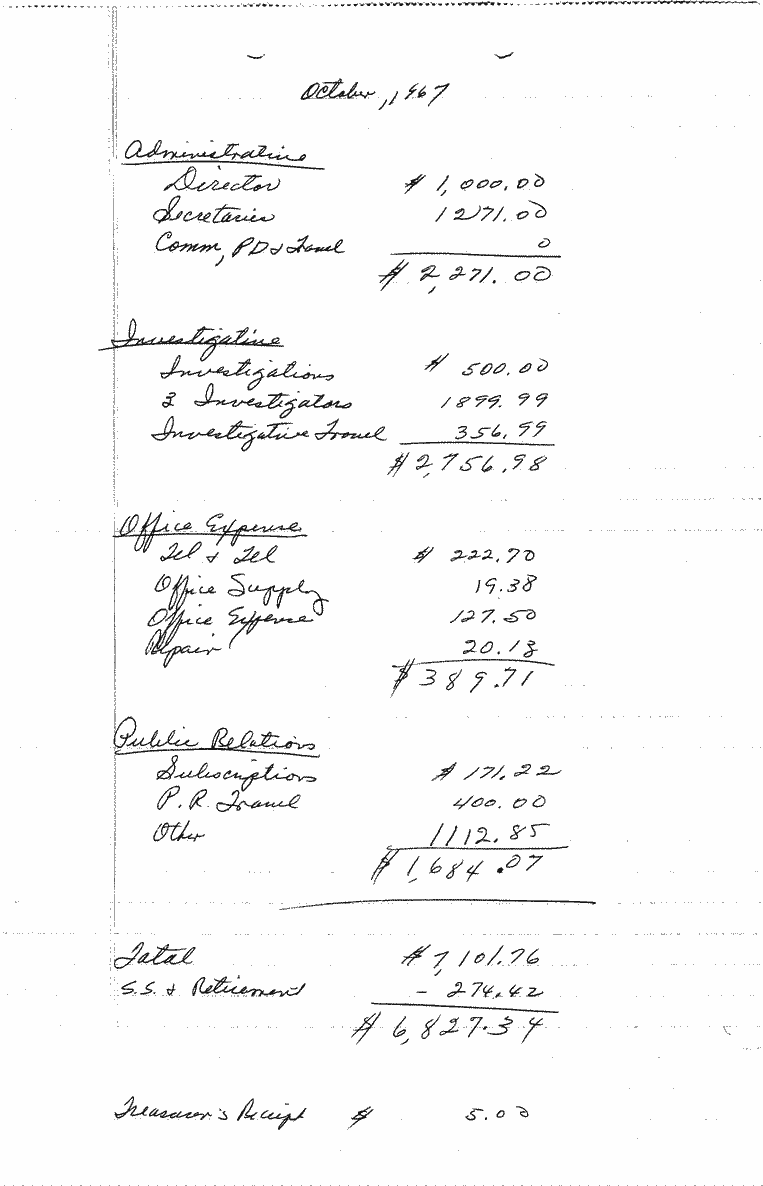 October, 1967
Administrative
Director $ 1,000.00
Secretaries 1271.00
Comm, PD & Travel 0
$ 2,271.00
Investigative
Investigations $ 500.00
3 Investigators 1899.99
Investigative Travel 356.99
$ 2,756.98
Office Expense
Tel & Tel $ 222.70
Office Supply 19.38
Office Expense 127.50
Repair 20.13
$ 389.71
Public Relations
Subscriptions $ 171.22
P.R. Travel 400.00
Other 1112.85
$ 1,684.07
Total $ 7,101.76
S.S. & Retirement - 274.42
$ 6,827.34
Treasurer's Receipt $ 5.00